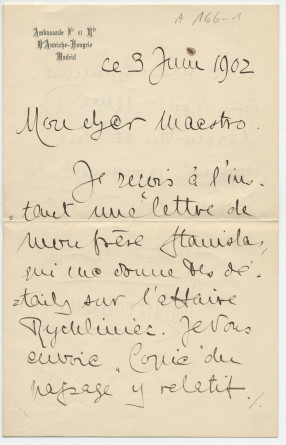 A 166-1
Ambassade Ile et Rle
D'Autriche-Hongrie
Madrid
ce 3 Juin 1902
Mon cher Maestro.
Je reçois à l'ins-
-tant une lettre de
mon frère Stanislas,
qui me donne des dé-
-tails sur l'affaire
Rychliniec. Je vous
envoie "Copie" du
passage y relatif.